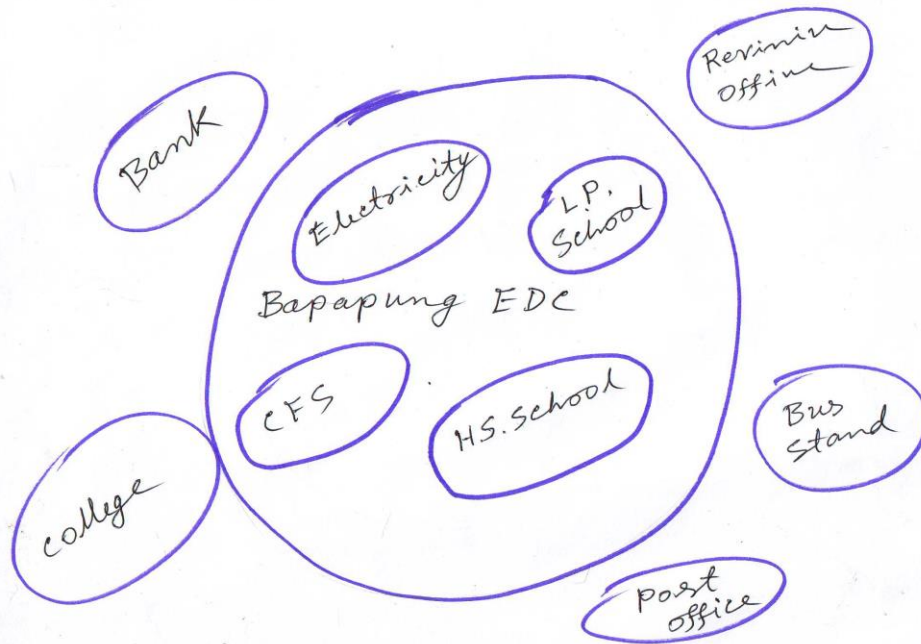 Reviniu
Offine
Bank
Electricity
L.P.
School
Bapapung EDC
CFS
HS. School
Bus
Stand
College
Post
office